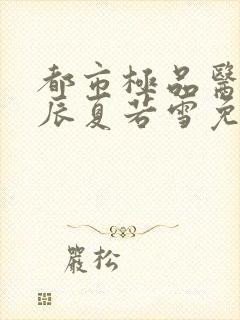 都市極品醫
辰夏若雪免
嚴松